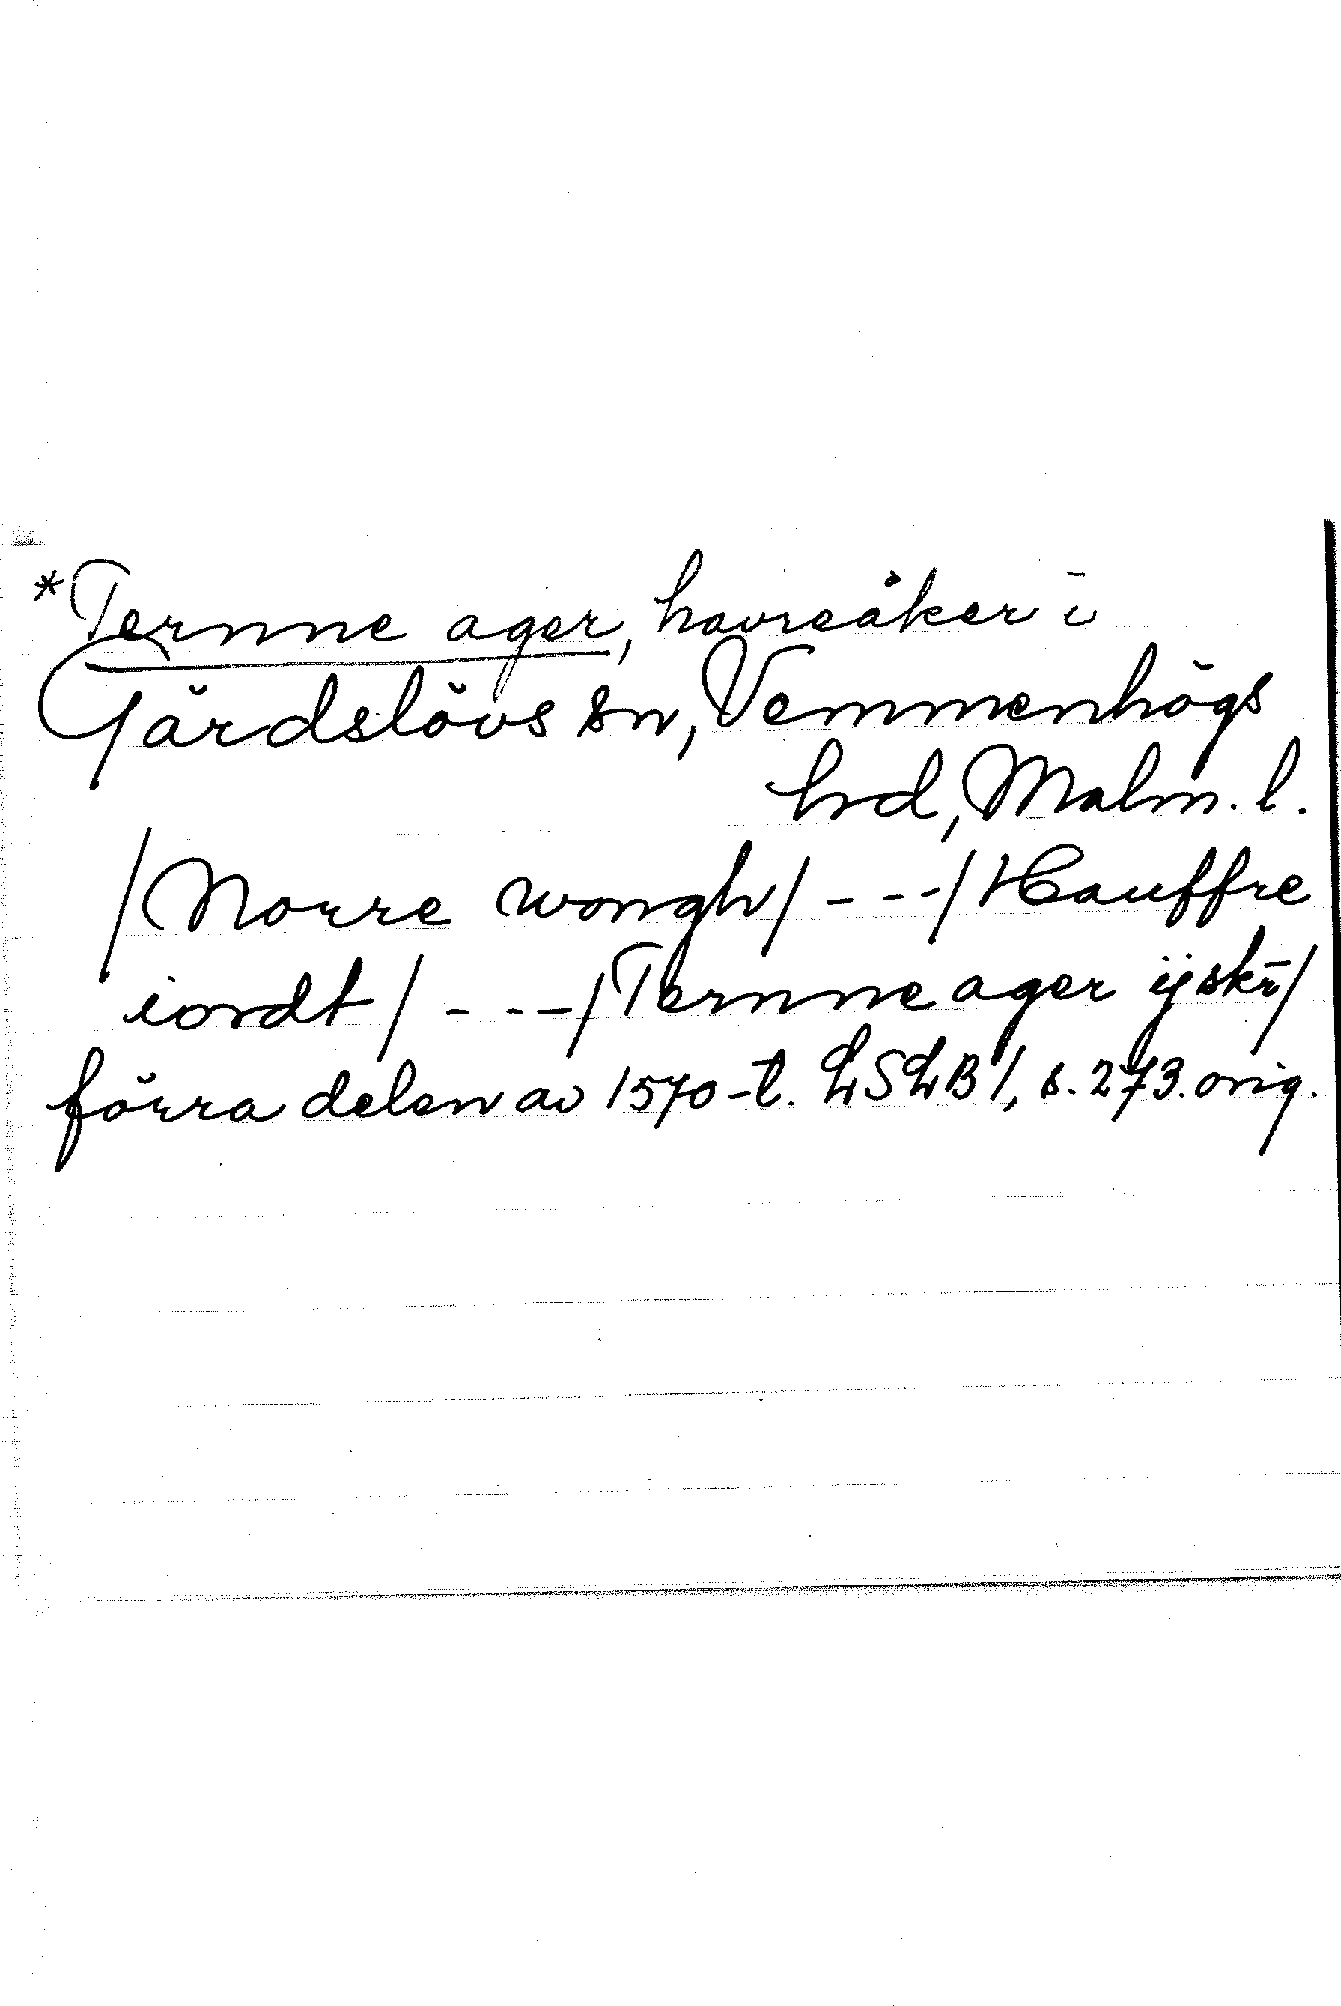 *Ternne ager, havreåker i
Gärdslövs sn, Vemmenhögs
hrd, Malm. l.
/Norre wongh/ - - -/Hauffre
iordt/ - - -/Ternne ager ij skr̄/
förra delen av 1570-t. LSLB 1, s. 273. orig.